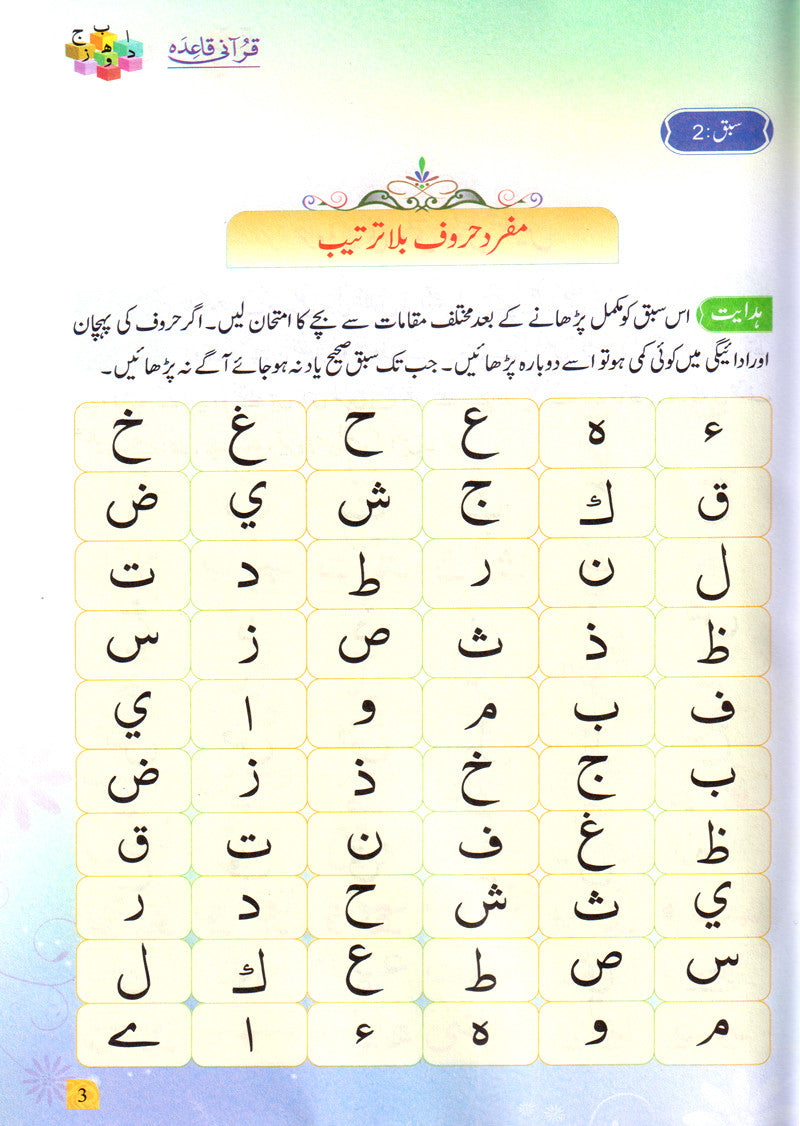 قرآنی قاعدہ
ا ب ج
د ه و ز
سبق: 2
مفرد حروف بلا ترتیب
ہدایت اس سبق کو مکمل پڑھانے کے بعد مختلف مقامات سے بچے کا امتحان لیں۔ اگر حروف کی پہچان
اور ادائیگی میں کوئی کمی ہو تو اسے دوبارہ پڑھائیں۔ جب تک سبق صحیح یاد نہ ہو جائے آگے نہ پڑھائیں۔
ء ه ع ح غ خ
ق ك ج ش ي ض
ل ن ر ط د ت
ظ ذ ث ص ز س
ف ب م و ا ي
ب ج خ ذ ز ض
ظ غ ف ن ت ق
ي ث ش ح د ر
س ص ط ع ك ل
م و ه ء ا ے
3